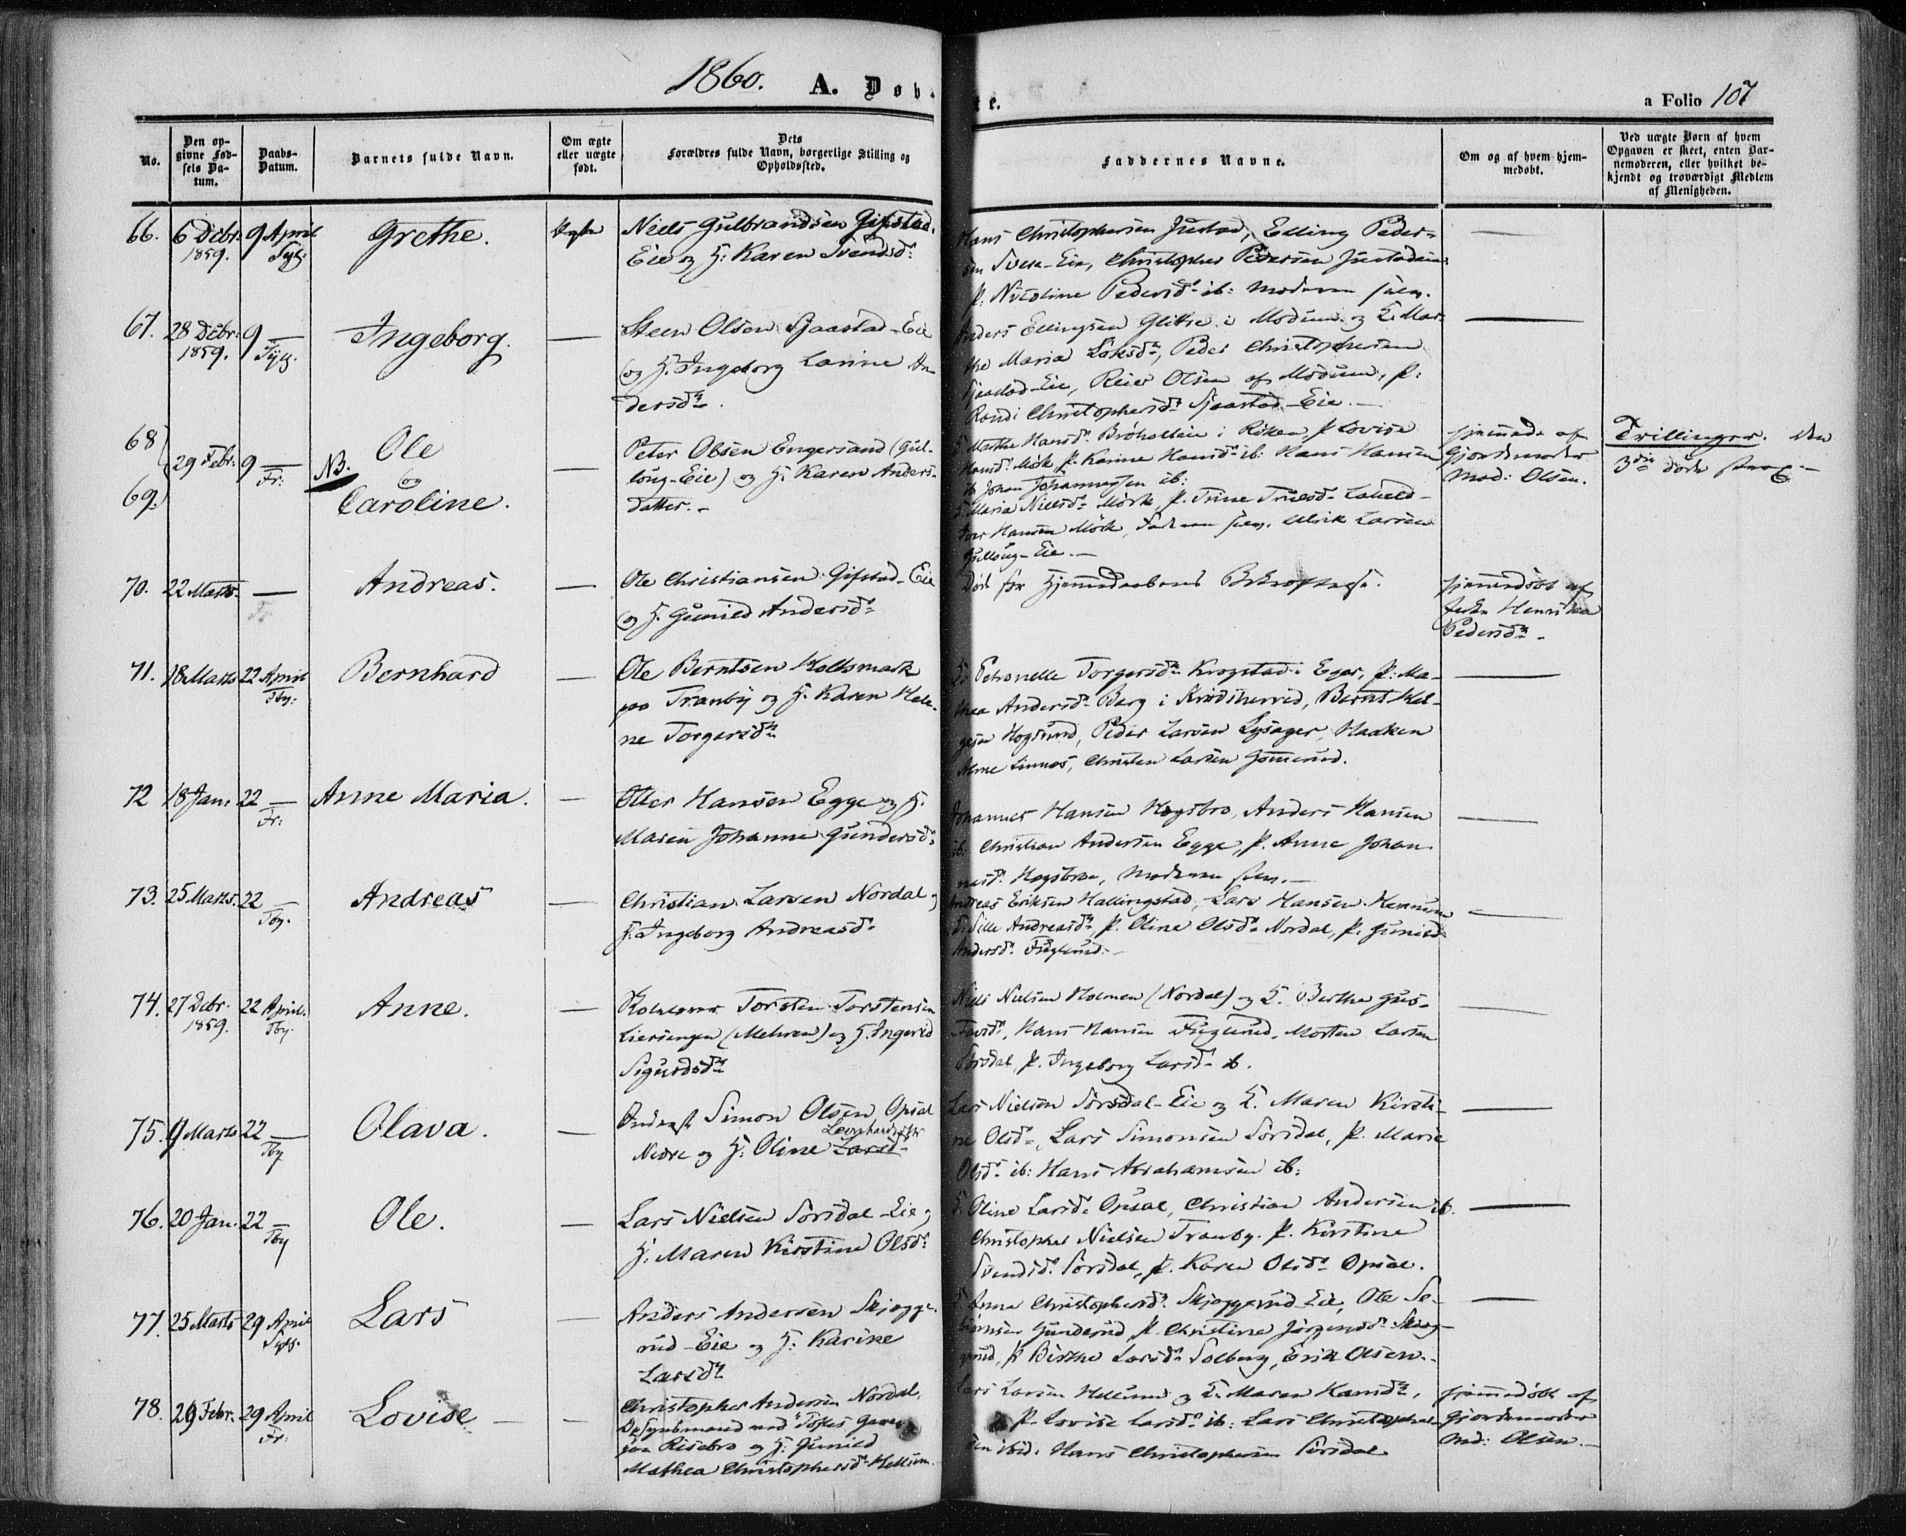 1860. A. Døbte. a Folio 107
No.
Den opgivne Fødsels Datum.
Daabs-Datum.
Barnets fulde Navn.
Om ægte eller uægte født.
Dets Forældres fulde Navn, borgerlige Stilling og Opholdssted.
Faddernes Navne.
Om og af hvem hjemmedøbt.
Ved uægte Børn af hvem Opgaven er skeet, enten Barnemoderen, eller hvilket bekjendt og troværdigt Medlem af Menigheden.
66. 6 Debr. 9 April Grethe. Ægte Niels Gulbrandsen Gifstad
1859. Sylg. Eie og H: Karen Svendsd:
Hans Christophersen Justad, Elling Peder-
sen Svere-Eie, Christopher Pedersen Justadeie
P. Nicoline Pedersd: ib: Moderen selv.
67. 28 Debr. 9 — Ingeborg. — Steen Olsen Sjaastad-Eie
1859. Sylg. og H. Ingeborg Lovine An
dersd:
Anders Ellingsen Glitre i Modum og H: Mar-
the Maria Larsd:, Peder Christophersen
Sjaastad-Eie, Reier Olsen af Modum, P:
Randi Christophersd: Sjaastad-Eie. —
68
69. 29 Febr. 9 — Fr: NB: Ole og Caroline. — Peter Olsen Engersand (Gul-
loug-Eie) og H: Karen Anders-
datter. -
H Marthe Hansd: i Røken P Lovise
Hansd: Mørk P. Karine Hansd: ib: Hans Hansen
ib Johan Johannesen ib:
H: Maria Nielsd: Mørk, P. Trine Truesd:
Iver Hansen Mørk, Faderen selv, Ulrik Larsen
Gulloug-Eie. —
Hjemmed: af
Gjordemoder
Mad: Olsen.
Trillinger. Den
3die døde strax —
70. 22 Marts — Fr Andreas. — Ole Christiansen Gifstad-Eie
og H. Gunild Andersd:
Død før Hjemmedaabens Bekræftelse.
Hjemmedøbt af
Henrikka
Pedersd:
71. 18 Marts 22 April Tby: Bernhard — Ole Berntsen Kolbsmark
paa Tranby og H. Karen Hele-
ne Torgersd:
H: Petronelle Torgersd: Krogstad i Eger, P: Ma-
thea Andersd: Berg i Krødsherred, Bernt Hel-
gesen Hogsund, Peder Larsen Lysager, Haaken
Linnes, Christen Larsen Gomerud.
72 18 Jan. 22 — Fr: Anne Maria. — Otter Hansen Egge og H.
Maren Johanne Gundersd:
Johannes Hansen Hogsbro, Anders Hansen
ib: Christian Andersen Egge, P. Anne Johan-
nesd: Hogsbro, Moderen selv. —
73. 25 Marts. 22 — Tby. Andreas — Christian Larsen Nordal og
H. Ingeborg Andreasd:
Andreas Eriksen Hallingstad, Lars Hansen Hennum
H: Sille Andreasd:, P. Oline Olsd: Nordal, P. Gunild
Andersd: Fuglerud. —
74. 27 Debr. 22 April. Anne. — Torsten Torstensen
1859. Tby. Liersengen (Mehren) og H. Ingerid
Sigurdsd:
Niels Nielsen Holmen (Nordal) og H. Berthe Gus-
tavsd:, Hans Hansen Fuglerud, Morten Larsen
Sørsdal, P. Ingeborg Larsd: ib.
75. 9 Marts 22 — Tby Olava. — Simon Olsen Opsal
Leonhardsdtr
Nedre og H: Oline Larsd:
Lars Nielsen Sørsdal-Eie og H. Maren Kirsti-
ne Olsd:, Lars Simonsen Sørsdal, P. Marie
Olsd: ib: Hans Abrahamsen ib:
76. 20 Jan. 22 — Tby Ole. — Lars Nielsen Sørsdal-Eie og
H. Maren Kirstine Olsd:
H: Oline Larsd: Opsal, Christian Andersen ib.
Christopher Nielsen Tranby. P. Kirstine
Svendsd: Sørsdal, P. Karen Olsd: Opsal.
77. 25 Marts 29 April Sylg. Lars — Anders Andersen Skjegge-
rud-Eie og H: Karine
Larsd:
H Anne Christophersd: Skjeggerud-Eie, Ole
Gunderud P. Christine Jørgensd: Skjeg-
gerud, P Birthe Larsd: Solberg, Erik Olsen.
78. 29 Febr. 29 April Fr: Lovise — — Christopher Andersen Nordal,
paa Risebro og H: Gunild
Mathea Christophersd: Hellum.
Lars Larsen Hellum og H: Maren Hansd:,
P. Lovise Larsd: ib: Lars Christopher-
sen ibid: Hans Christophersen Sørsdal
Hjemmedøbt af
Gjordemoder
Md: Olsen. —